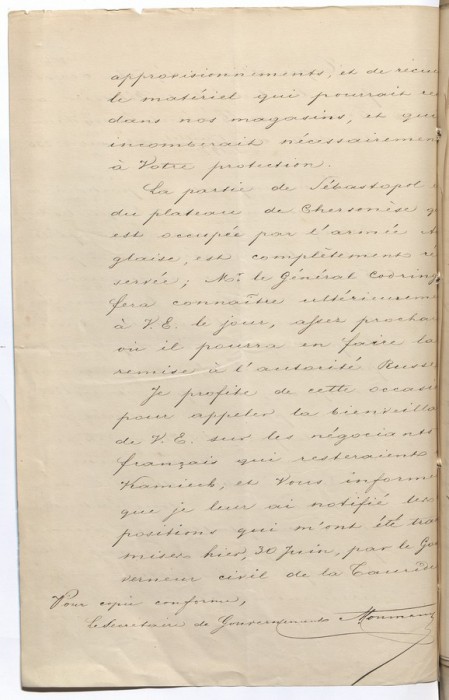 approvisionnements, et de recue
le matériel qui pourrait re
dans nos magasins, et qui
incomberait nécessairemen
à Votre protection.
La partie de Sébastopol e
du plateau de Chersonèse q
est occupée par l'armée A
glaise, est complètement ré
servée; Mr. le Général Codring
fera connaître ultérieureme
à V. E. le jour, assez prochai
où il pourra en faire la
remise à l'autorité Russe
Je profite de cette occasi
pour appeler la bienveilla
de V. E. sur les négociants
français qui resteraient
Kamiech, et Vous informe
que je leur ai notifié les
positions qui m'ont été tra
mises hier, 30 Juin, par le Go
verneur civil de la Tauride
Pour copie conforme,
Le Secrétaire de Gouvernement